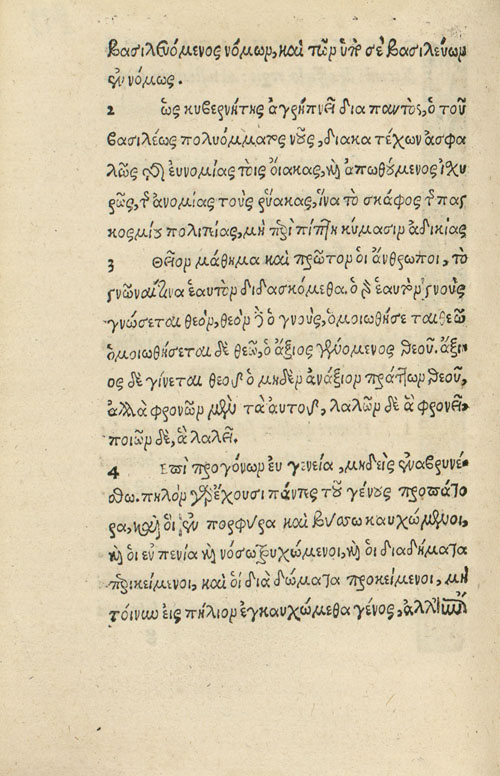 βασιλευόμενος νόμωρ, καὶ τῶρ ὑπὸ σὲ βασιλεύωρ
ἐν νόμως.
2 ὡς κυβερνήτης ἀγρήπνεῖ δια παντὸς, ὁ τοῦ
βασιλέως πολυόμματος νοῦς, διακα τέχων ἀσφα
λῶς τῆς ἐυνομίας τοὶς ὄιακας, καὶ ἀπωθούμενος ἰχυ
ρῶς, τῆς ἀνομίας τοὺς ῥύακας, ἵνα τὸ σκάφος τῆς παγ
κοσμίου πολιτίας, μὴ περιπίπτῃ κύμασιρ ἀδικίας
3 Θεῖορ μάθημα καὶ πρῶτορ ὁι ἄνθρωποι, τὸ
γνῶναί τινα ἑαυτὸρ διδασκόμεθα. ὁ γὰρ ἑαυτὸρ γνοὺς
γνώσεται θεόρ, θεὸρ δὲ ὁ γνοὺς, ὁμοιωθήσε ται θεῶ
ὁμοιωθήσεται δὲ θεῶ, ὁ ἄξιος γενόμενος θεοῦ. ἄξι
ος δὲ γίνεται θεοῦ ὁ μηδὲρ ἀνάξιορ πράττωρ θεοῦ,
ἀλλὰ φρονῶρ μὲν τὰ αυτοῦ, λαλῶρ δὲ ἃ φρονεῖ,
ποιῶρ δὲ, ἃ λαλεῖ.
4 Επὶ προγόνωρ ευ γενεία, μηδεὶς ἐναβρυνέ
σθω. πηλὸρ γὰρ ἔχουσι πάντες τοῦ γένους προπάτο
ρα, καὶ ὁι ἐν πορφύρα καὶ βυσσω καυχώμενοι,
καὶ ὁι εν πενία καὶ νόσω τρυχώμενοι, καὶ ὁι διαδήματα
περικείμενοι, καὶ ὁι διὰ δώματα προκείμενοι, μὴ
τόινυν ἐις πήλιορ ἐγκαυχώμεθα γένος, ἀλλ'